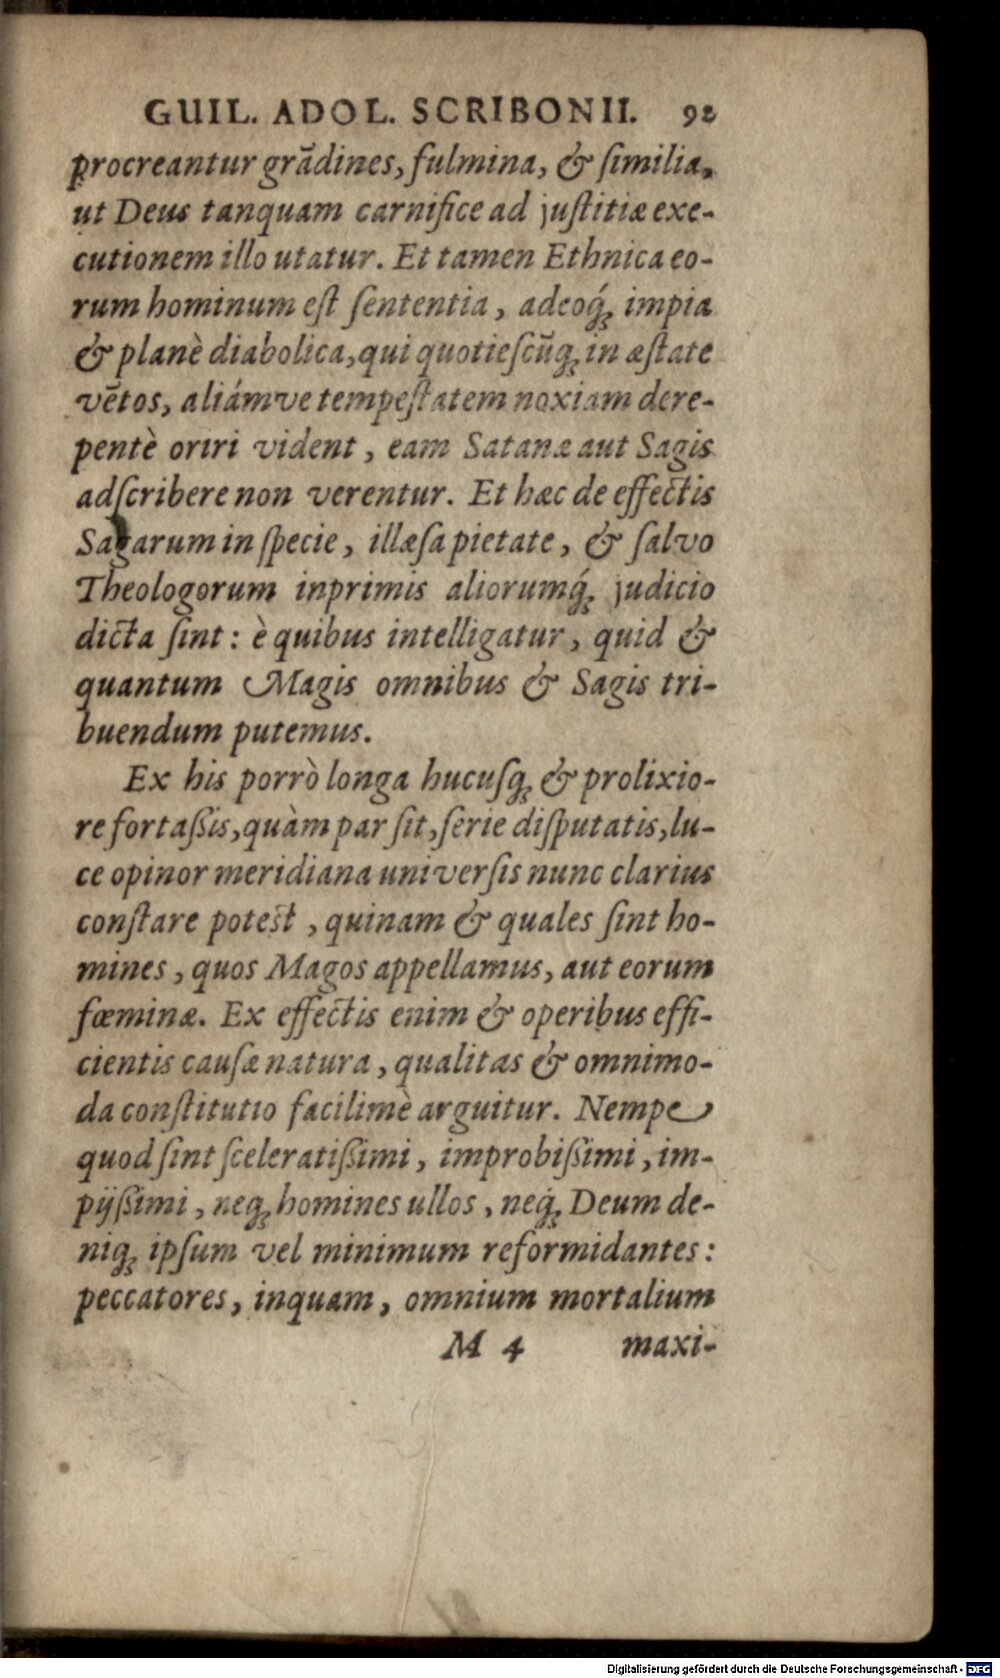 GUIL. ADOL. SCRIBONII. 92
procreantur grādines, fulmina, & ſimilia,
ut Deus tanquam carnifice ad juſtitiæ exe-
cutionem illo utatur. Et tamen Ethnica eo-
rum hominum eſt ſententia, adeoq́; impia
& planè diabolica, qui quotieſcūq; in æſtate
vētos, aliámve tempeſtatem noxiam dere-
pentè oriri vident, eam Satanæ aut Sagis
adſcribere non verentur. Et hæc de effectis
Sagarum in ſpecie, illæſa pietate, & ſalvo
Theologorum inprimis aliorumq́; judicio
dicta ſint: è quibus intelligatur, quid &
quantum Magis omnibus & Sagis tri-
buendum putemus.
Ex his porrò longa hucuſq; & prolixio-
re fortaßis, quàm par ſit, ſerie diſputatis, lu-
ce opinor meridiana univerſis nunc clarius
conſtare poteſt, quinam & quales ſint ho-
mines, quos Magos appellamus, aut eorum
fœminæ. Ex effectis enim & operibus effi-
cientis cauſæ natura, qualitas & omnimo-
da conſtitutio facilimè arguitur. Nempe
quod ſint ſceleratißimi, improbißimi, im-
pijßimi, neq; homines ullos, neq́; Deum de-
niq; ipſum vel minimum reformidantes:
peccatores, inquam, omnium mortalium
M 4 maxi-
Digitalisierung gefördert durch die Deutsche Forschungsgemeinschaft - DFG